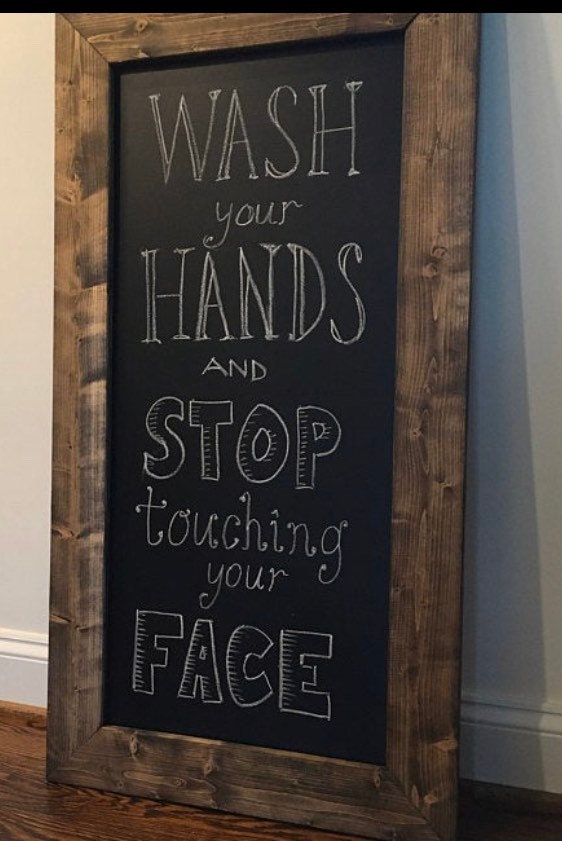 WASH
your
HANDS
AND
STOP
touching
your
FACE